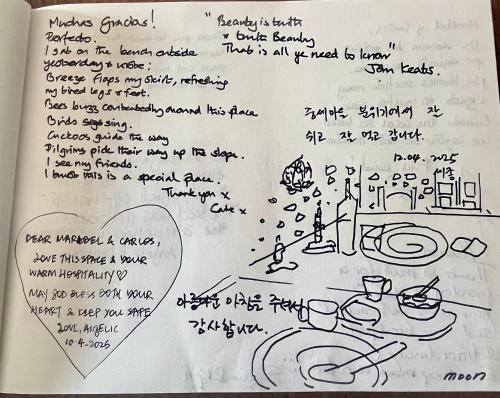 Muchas Gracias!
Perfecto.
I sat on the bench outside
yesterday & wrote:
Breeze flaps my skirt, refreshing
my tired legs & feet.
Bees buzz contentedly around this place
Birds sing.
Cuckoos guide the way
Pilgrims pick their way up the slope.
I see my friends.
I trust this is a special place.
Thank you x
Cate x
"Beauty is truth
& truth Beauty
That is all ye need to know"
John Keats.
분위기에서 잘
쉬고 잘 먹고 갑니다.
12.04.2025
세종
DEAR MARABEL & CARLOS,
LOVE THIS SPACE & YOUR
WARM HOSPITALITY♡
MAY GOD BLESS BOTH YOUR
HEART & KEEP YOU SAFE
LOVE,
10-4-2025
아침을
감사합니다.
moon